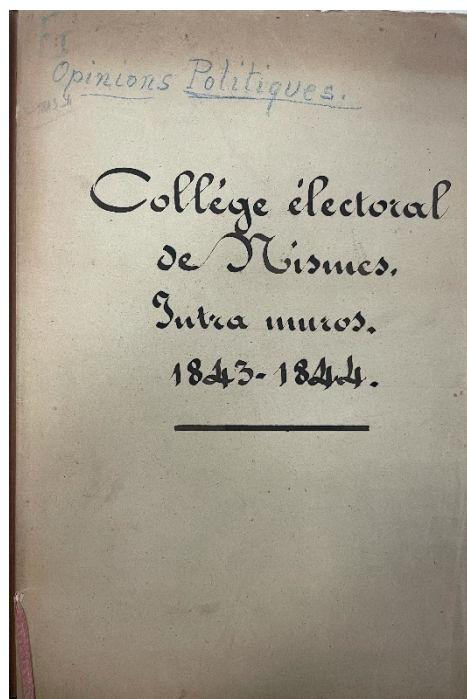 Opinions Politiques.
Collége électoral
de Nismes.
Intra muros.
1843-1844.